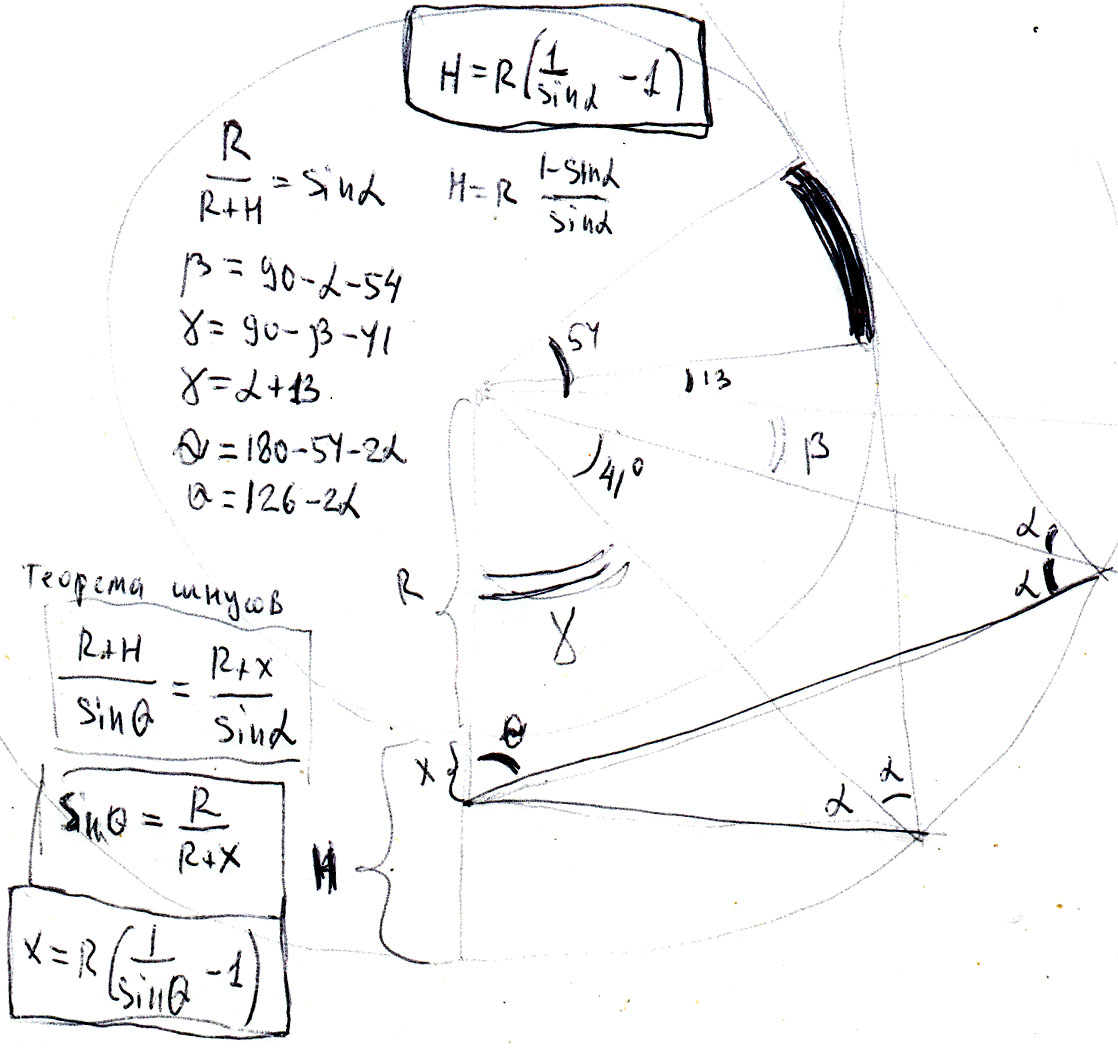 H = R(1/sinα - 1)
R/(R+H) = sinα
H = R (1-sinα)/sinα
β = 90-α-54
γ = 90-β-41
γ = α+13
θ = 180-54-2α
θ = 126-2α
54
13
β
41°
α
α
R
γ
Теорема синусов
(R+H)/sinθ = (R+x)/sinα
θ
x
α
α
sinθ = R/(R+x)
H
x = R(1/sinθ - 1)